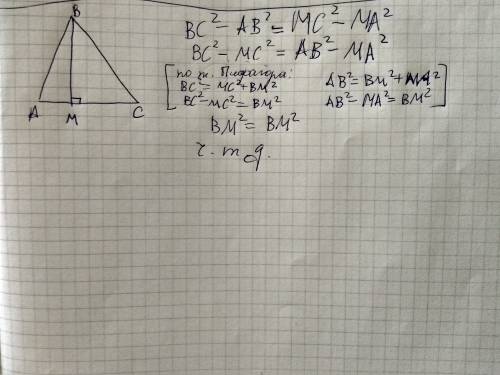 B
A
M
C
BC² - AB² = MC² - MA²
BC² - MC² = AB² - MA²
по т. Пифагора:
BC² = MC² + BM² AB² = BM² + MA²
BC² - MC² = BM² AB² - MA² = BM²
BM² = BM²
ч. т д.